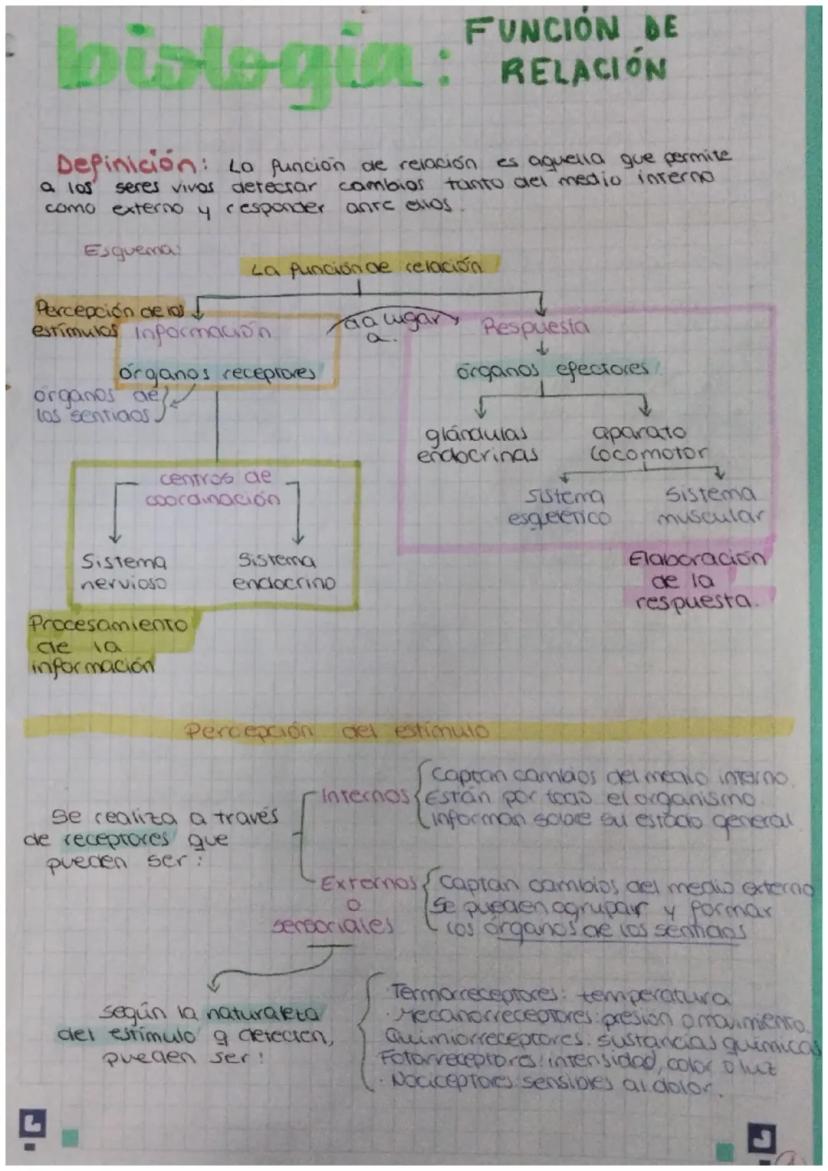 biología: FUNCIÓN DE
RELACIÓN
Definición: La función de relación es aquella que permite
a los seres vivos detectar cambios tanto del medio interno
como externo y responder ante ellos.
Esquema:
La función de relación
Percepción de los
estímulos
Información
da lugar
a.
Respuesta
órganos receptores
órganos de
los sentidos
órganos efectores
glándulas
endocrinas
aparato
locomotor
sistema
esquelético
sistema
muscular
centros de
coordinación
Sistema
nervioso
Sistema
endocrino
Elaboración
de la
respuesta.
Procesamiento
de la
información
Percepción del estímulo
Se realiza a través
de receptores que
pueden ser:
Internos
Captan cambios del medio interno.
Están por todo el organismo.
Informan sobre su estado general
Externos
o
sensoriales
Captan cambios del medio externo
Se pueden agrupar y formar
los órganos de los sentidos
según la naturaleza
del estímulo q detecten,
pueden ser:
Termorreceptores: temperatura
· Mecanorreceptores: presión o movimiento.
Quimiorreceptores: sustancias químicas
Fotorreceptores: intensidad, color o luz
· Nociceptores: sensibles al dolor.